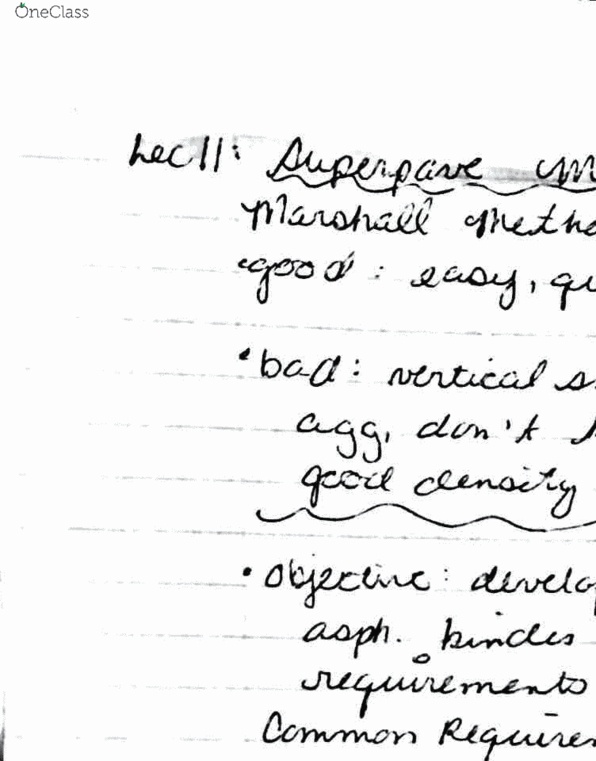 OneClass
Lec 11: Superpave M
Marshall Metho
•good: easy, qu
•bad: vertical s
agg, don't
good density
• objective: develop
asph. bindes
requirements
Common Requirem